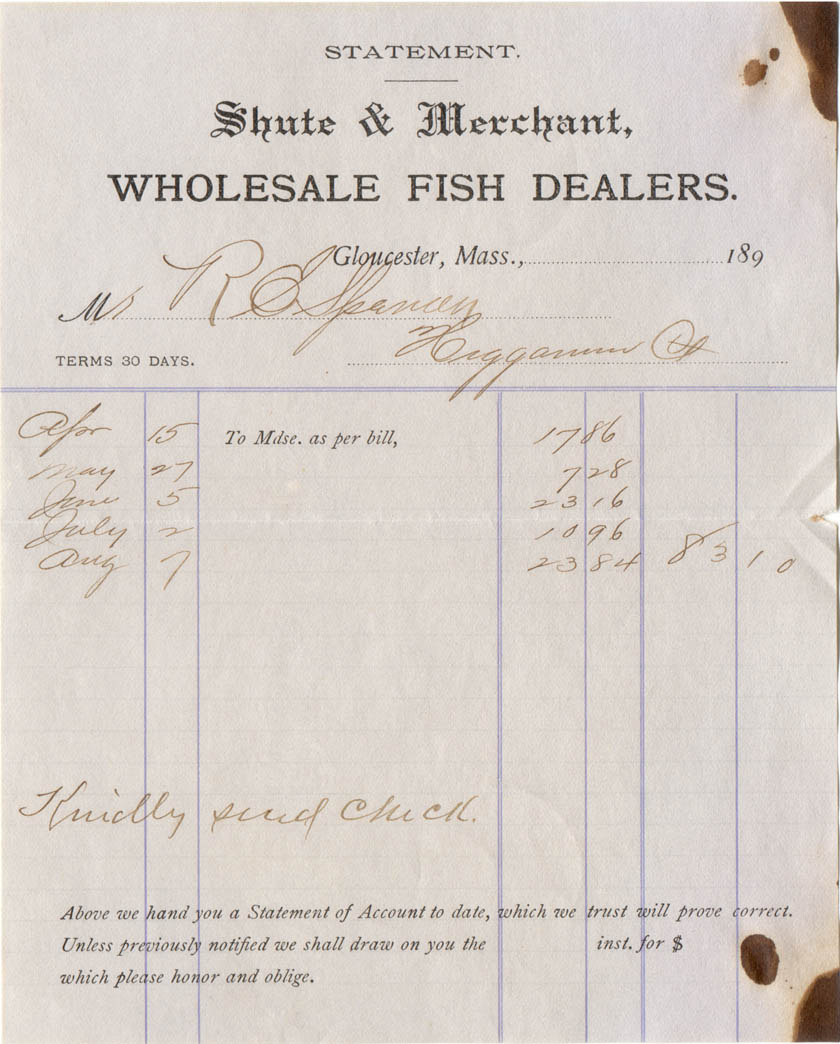 STATEMENT.
Shute & Merchant,
WHOLESALE FISH DEALERS.
Gloucester, Mass., 189
Mr R E Spencer
TERMS 30 DAYS. Higganum Ct
Apr 15 To Mdse. as per bill, 17 86
May 27 7 28
June 5 23 16
July 2 10 96
Aug 7 23 84 83 10
Kindly send check.
Above we hand you a Statement of Account to date, which we trust will prove correct.
Unless previously notified we shall draw on you the inst. for $
which please honor and oblige.